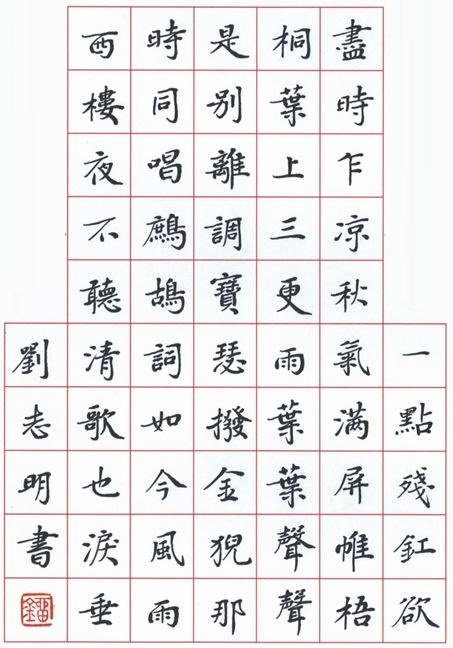 一點殘釭欲
盡時乍凉秋氣滿屏帷梧
桐葉上三更雨葉葉聲聲
是别離調寶瑟撥金猊那
時同唱鷓鴣詞如今風雨
西樓夜不聽清歌也淚垂
劉志明書